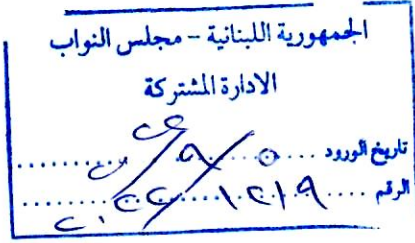 الجمهورية اللبنانية – مجلس النواب
الادارة المشتركة
تاريخ الورود ٥ / ٩ /
الرقم ١٢١٩ / ٢٠٢٢